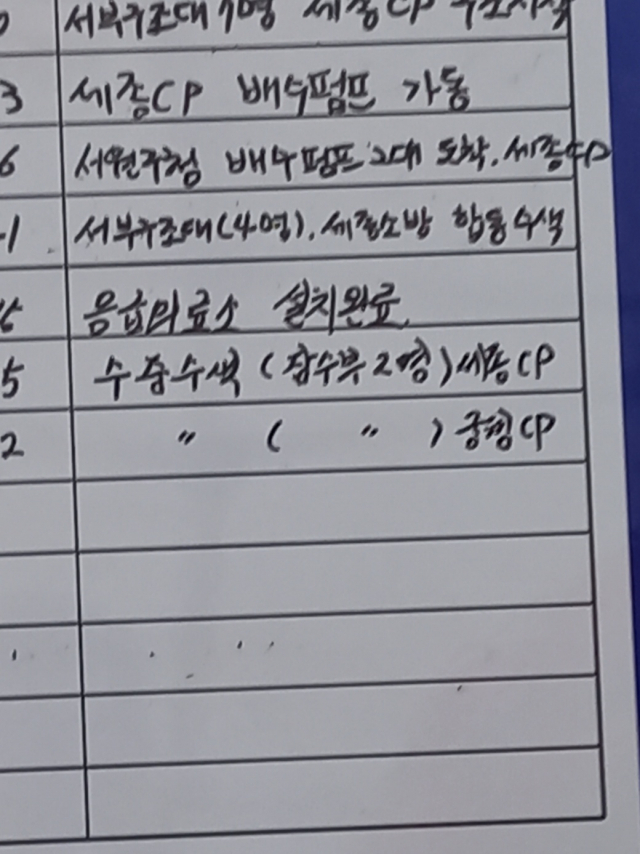 서부구조대 7명 세종CP 구조수색
3 세종CP 배수펌프 가동
6 서원구청 배수펌프 2대 도착. 세종CP
1 서부구조대(4명). 세종소방 합동수색
5 응급의료소 설치완료.
5 수중수색 (잠수부 2명) 세종CP
2 〃 ( 〃 ) 궁평CP